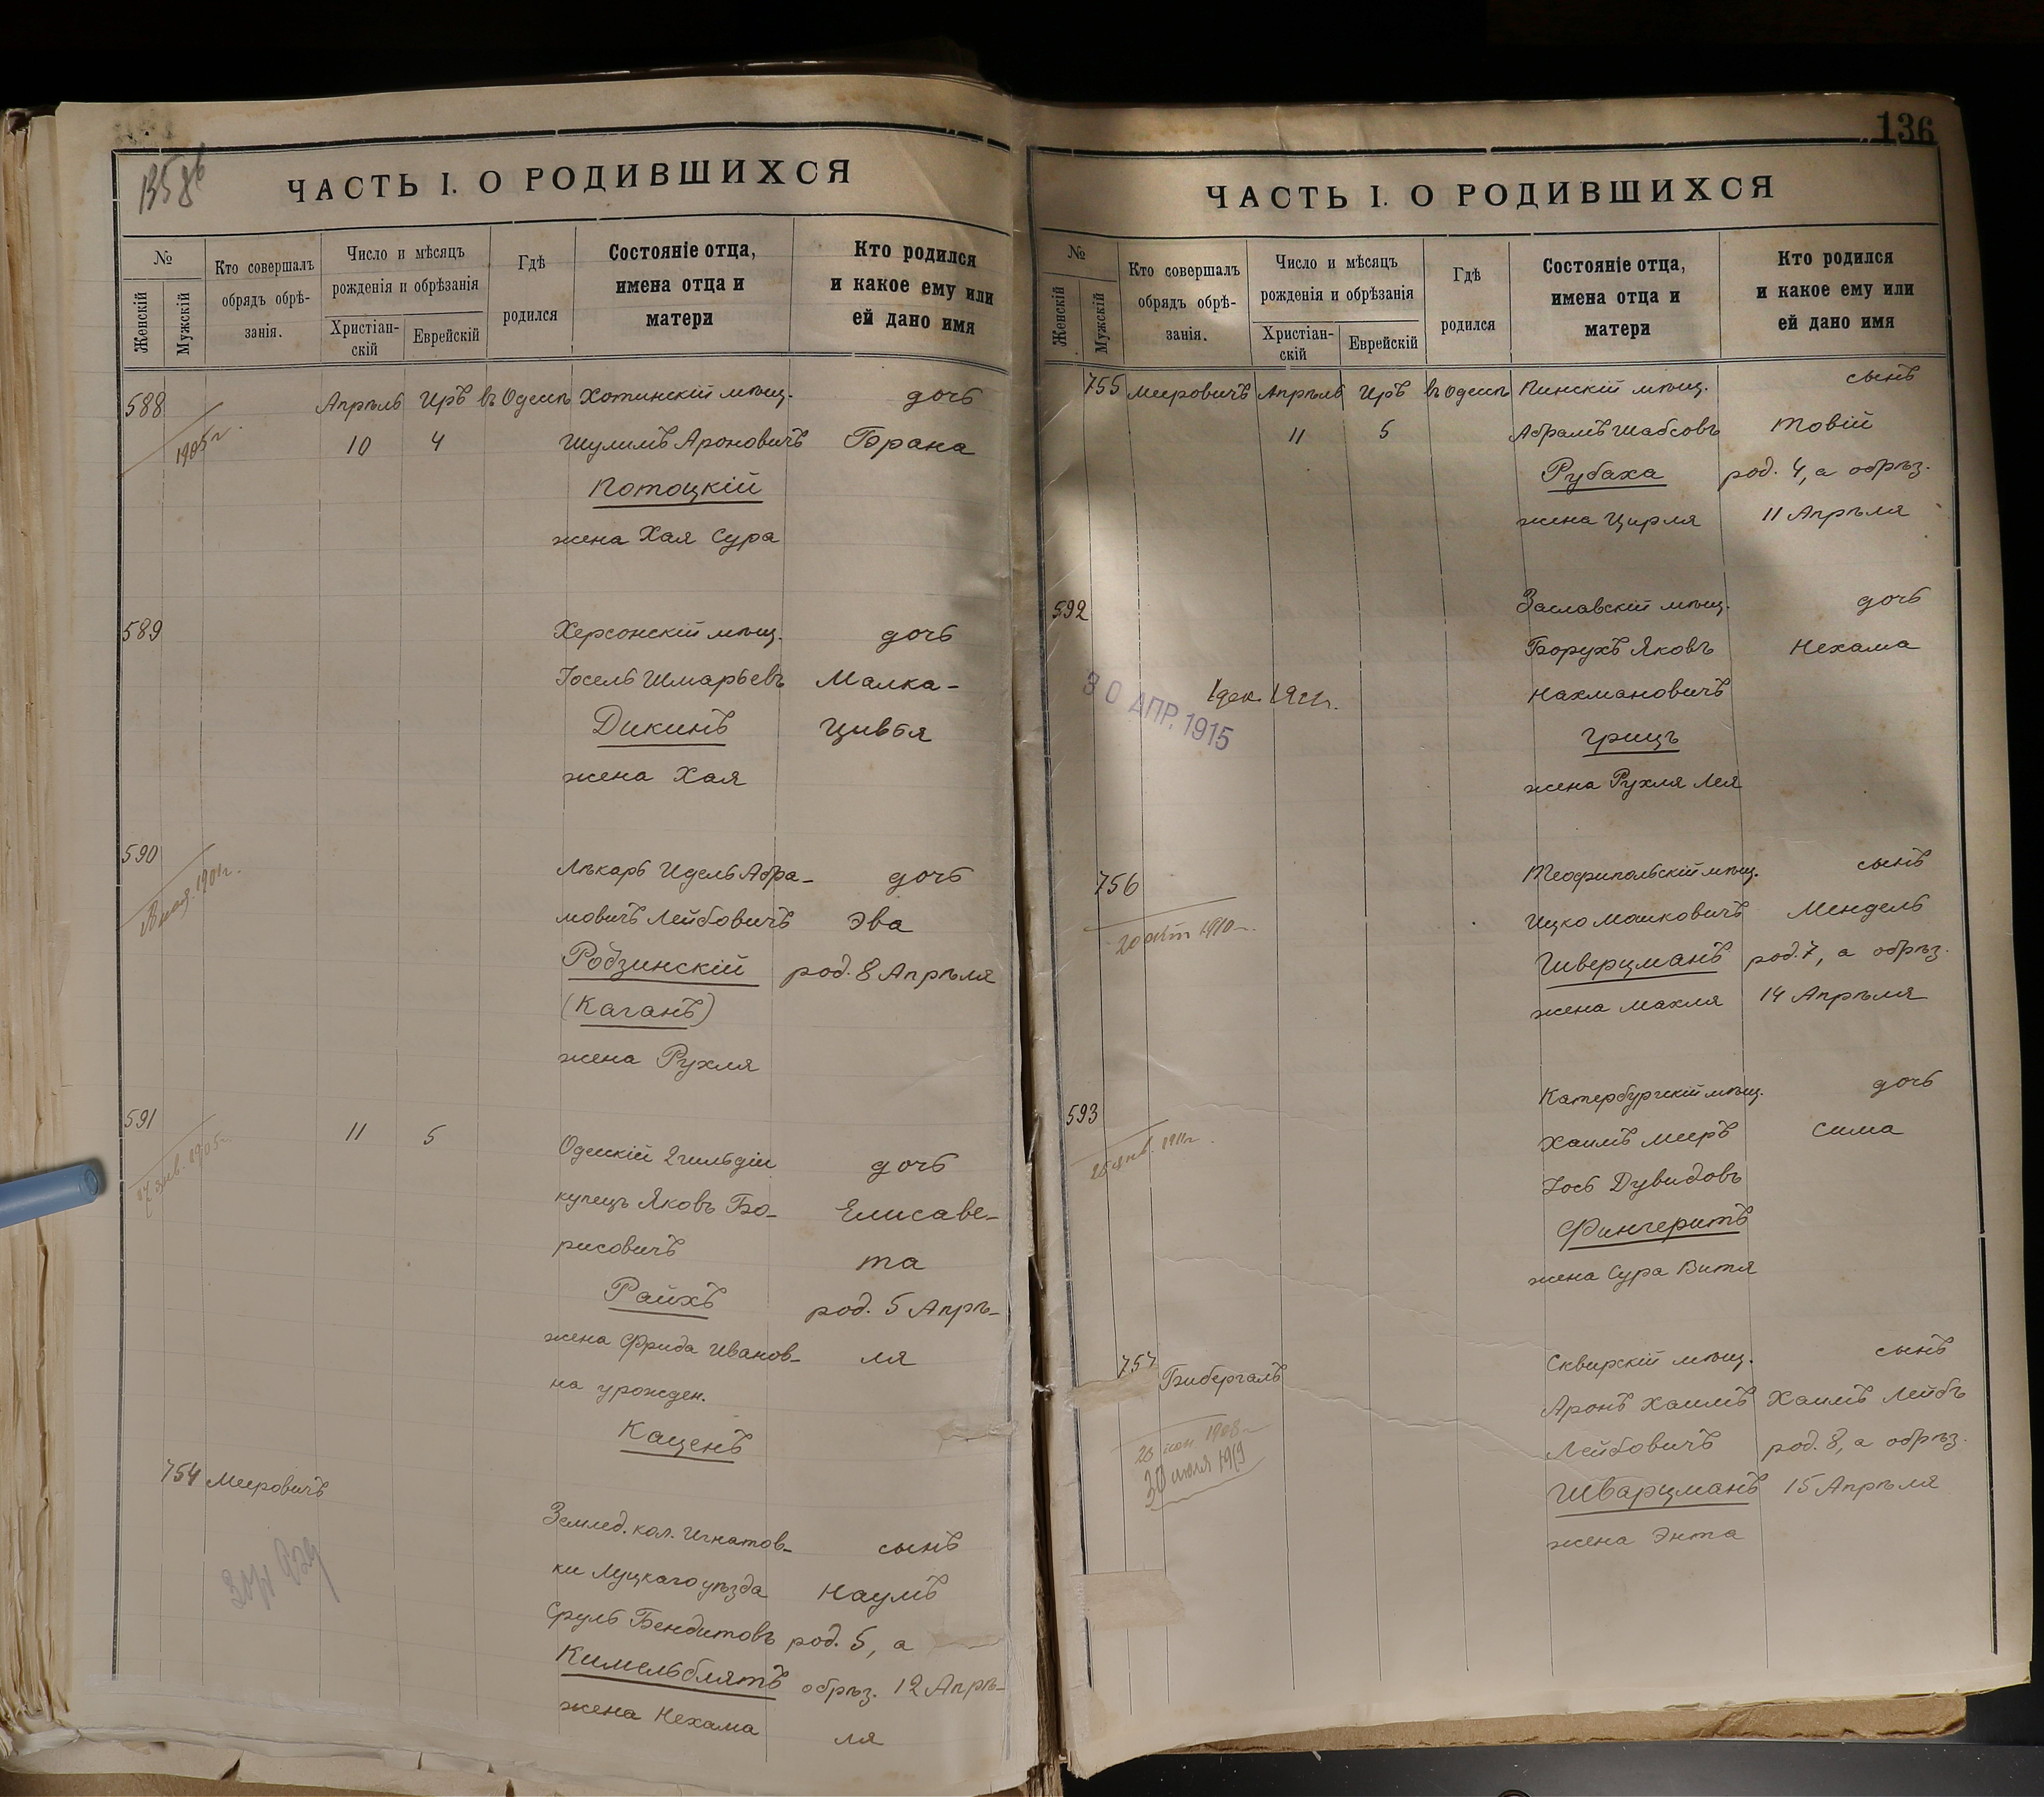 ЧАСТЬ I. О РОДИВШИХСЯ
№
Женскій
Мужскій
Кто совершалъ
обрядъ обрѣ-
занія.
Число и мѣсяцъ
рожденія и обрѣзанія
Христіан-
скій
Еврейскій
Гдѣ
родился
Состояніе отца,
имена отца и
матери
Кто родился
и какое ему или
ей дано имя
588 Апрѣль Иръ въ Одессѣ Хотинскій мѣщ. дочь
1905 г. 10 4 Шулимъ Ароновичъ Брана
Потоцкій
жена Хая Сура
589 Херсонскій мѣщ. дочь
Іосель Шмарьевъ Малка-
Дикинъ Цивья
жена Хая
590 Лѣкарь Идель Абра- дочь
1901 г. мовичъ Лейбовичъ Эва
Родзинскій род. 8 Апрѣля
(Каганъ)
жена Рухля
591 11 5 Одесскій 2 гильдіи дочь
1905 г. купецъ Яковъ Бо- Елисаве-
рисовичъ та
Райхъ род. 5 Апрѣ-
жена Фрида Иванов- ля
на урожден.
Каценъ
754 Мееровичъ Землед. кол. Игнатов- сынъ
ки Луцкаго уѣзда Наумъ
Сруль Бендитовъ род. 5, а
Кимельблятъ обрѣз. 12 Апрѣ-
жена Нехама ля
136
ЧАСТЬ I. О РОДИВШИХСЯ
№
Женскій
Мужскій
Кто совершалъ
обрядъ обрѣ-
занія.
Число и мѣсяцъ
рожденія и обрѣзанія
Христіан-
скій
Еврейскій
Гдѣ
родился
Состояніе отца,
имена отца и
матери
Кто родился
и какое ему или
ей дано имя
755 Мееровичъ Апрѣль Иръ въ Одессѣ Пинскій мѣщ. сынъ
11 5 Абрамъ Шабсовъ Товій
Рубаха род. 4, а обрѣз.
жена Цирля 11 Апрѣля
592 Заславскій мѣщ. дочь
Борухъ Яковъ Нехама
1 дек. 1911 г. Нахмановичъ
30 АПР. 1915
Грицъ
жена Рухля Лея
756 Теофипольскій мѣщ. сынъ
20 окт 1910 г. Ицко Мошковичъ Мендель
Шверцманъ род. 7, а обрѣз.
жена Махля 14 Апрѣля
593 Катербургскій мѣщ. дочь
Хаимъ Мееръ Сима
Іось Дувидовъ
Фингеритъ
жена Сура Витя
757 Бибергалъ Сквирскій мѣщ. сынъ
Аронъ Хаимъ Хаимъ Лейбъ
1908 г. Лейбовичъ род. 8, а обрѣз.
Шварцманъ 15 Апрѣля
жена Энта